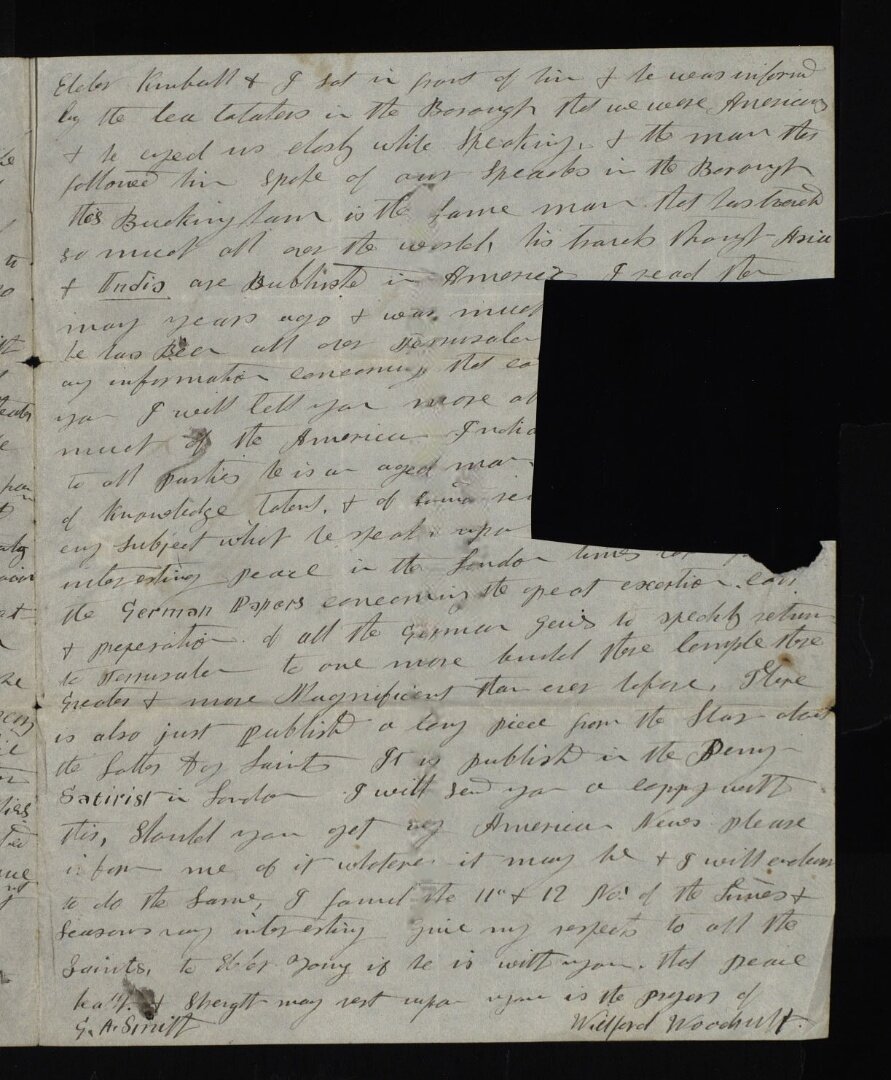 Elder Kimball & I sat in front of him & he was informd
by the tea totalers in the Borough that we were Americans
& he eyed us closely while speaking, & the man that
followed him spoke of our speaches in the Borough
this Buckingham is the same man that has traveld
so much all over the world, his travels through Asia
& India are Publishd in America I read them
many years ago & was much
he has Been all over Jerrusalem
any information concerning that co
you I will tell you more ab
much of the American India
to all parties he is an aged man
of knowledge talent, & of
any subject what he speaks upon
interesting peace in the London times
the German Papers concerning the great exertion
& preperation of all the German Jews to speedily return
to Jerrusalem to one more build there temple there
Greater & more Magnificent than ever before, There
is also just publishd a long piece from the Star about
the Latter Day Saints It is publishd in the Penny
Satirist in London I will send you a coppy with
this, Should you get any American News please
inform me of it whatever it may be & I will endeavor
to do the same, I found the 11 & 12 No. of the Times &
Seasons very interesting Give my respects to all the
Saints, to Elder Young if he is with you. that peace
health & strength may rest upon you is the prayer of
G. A. Smith Wilford Woodruff.